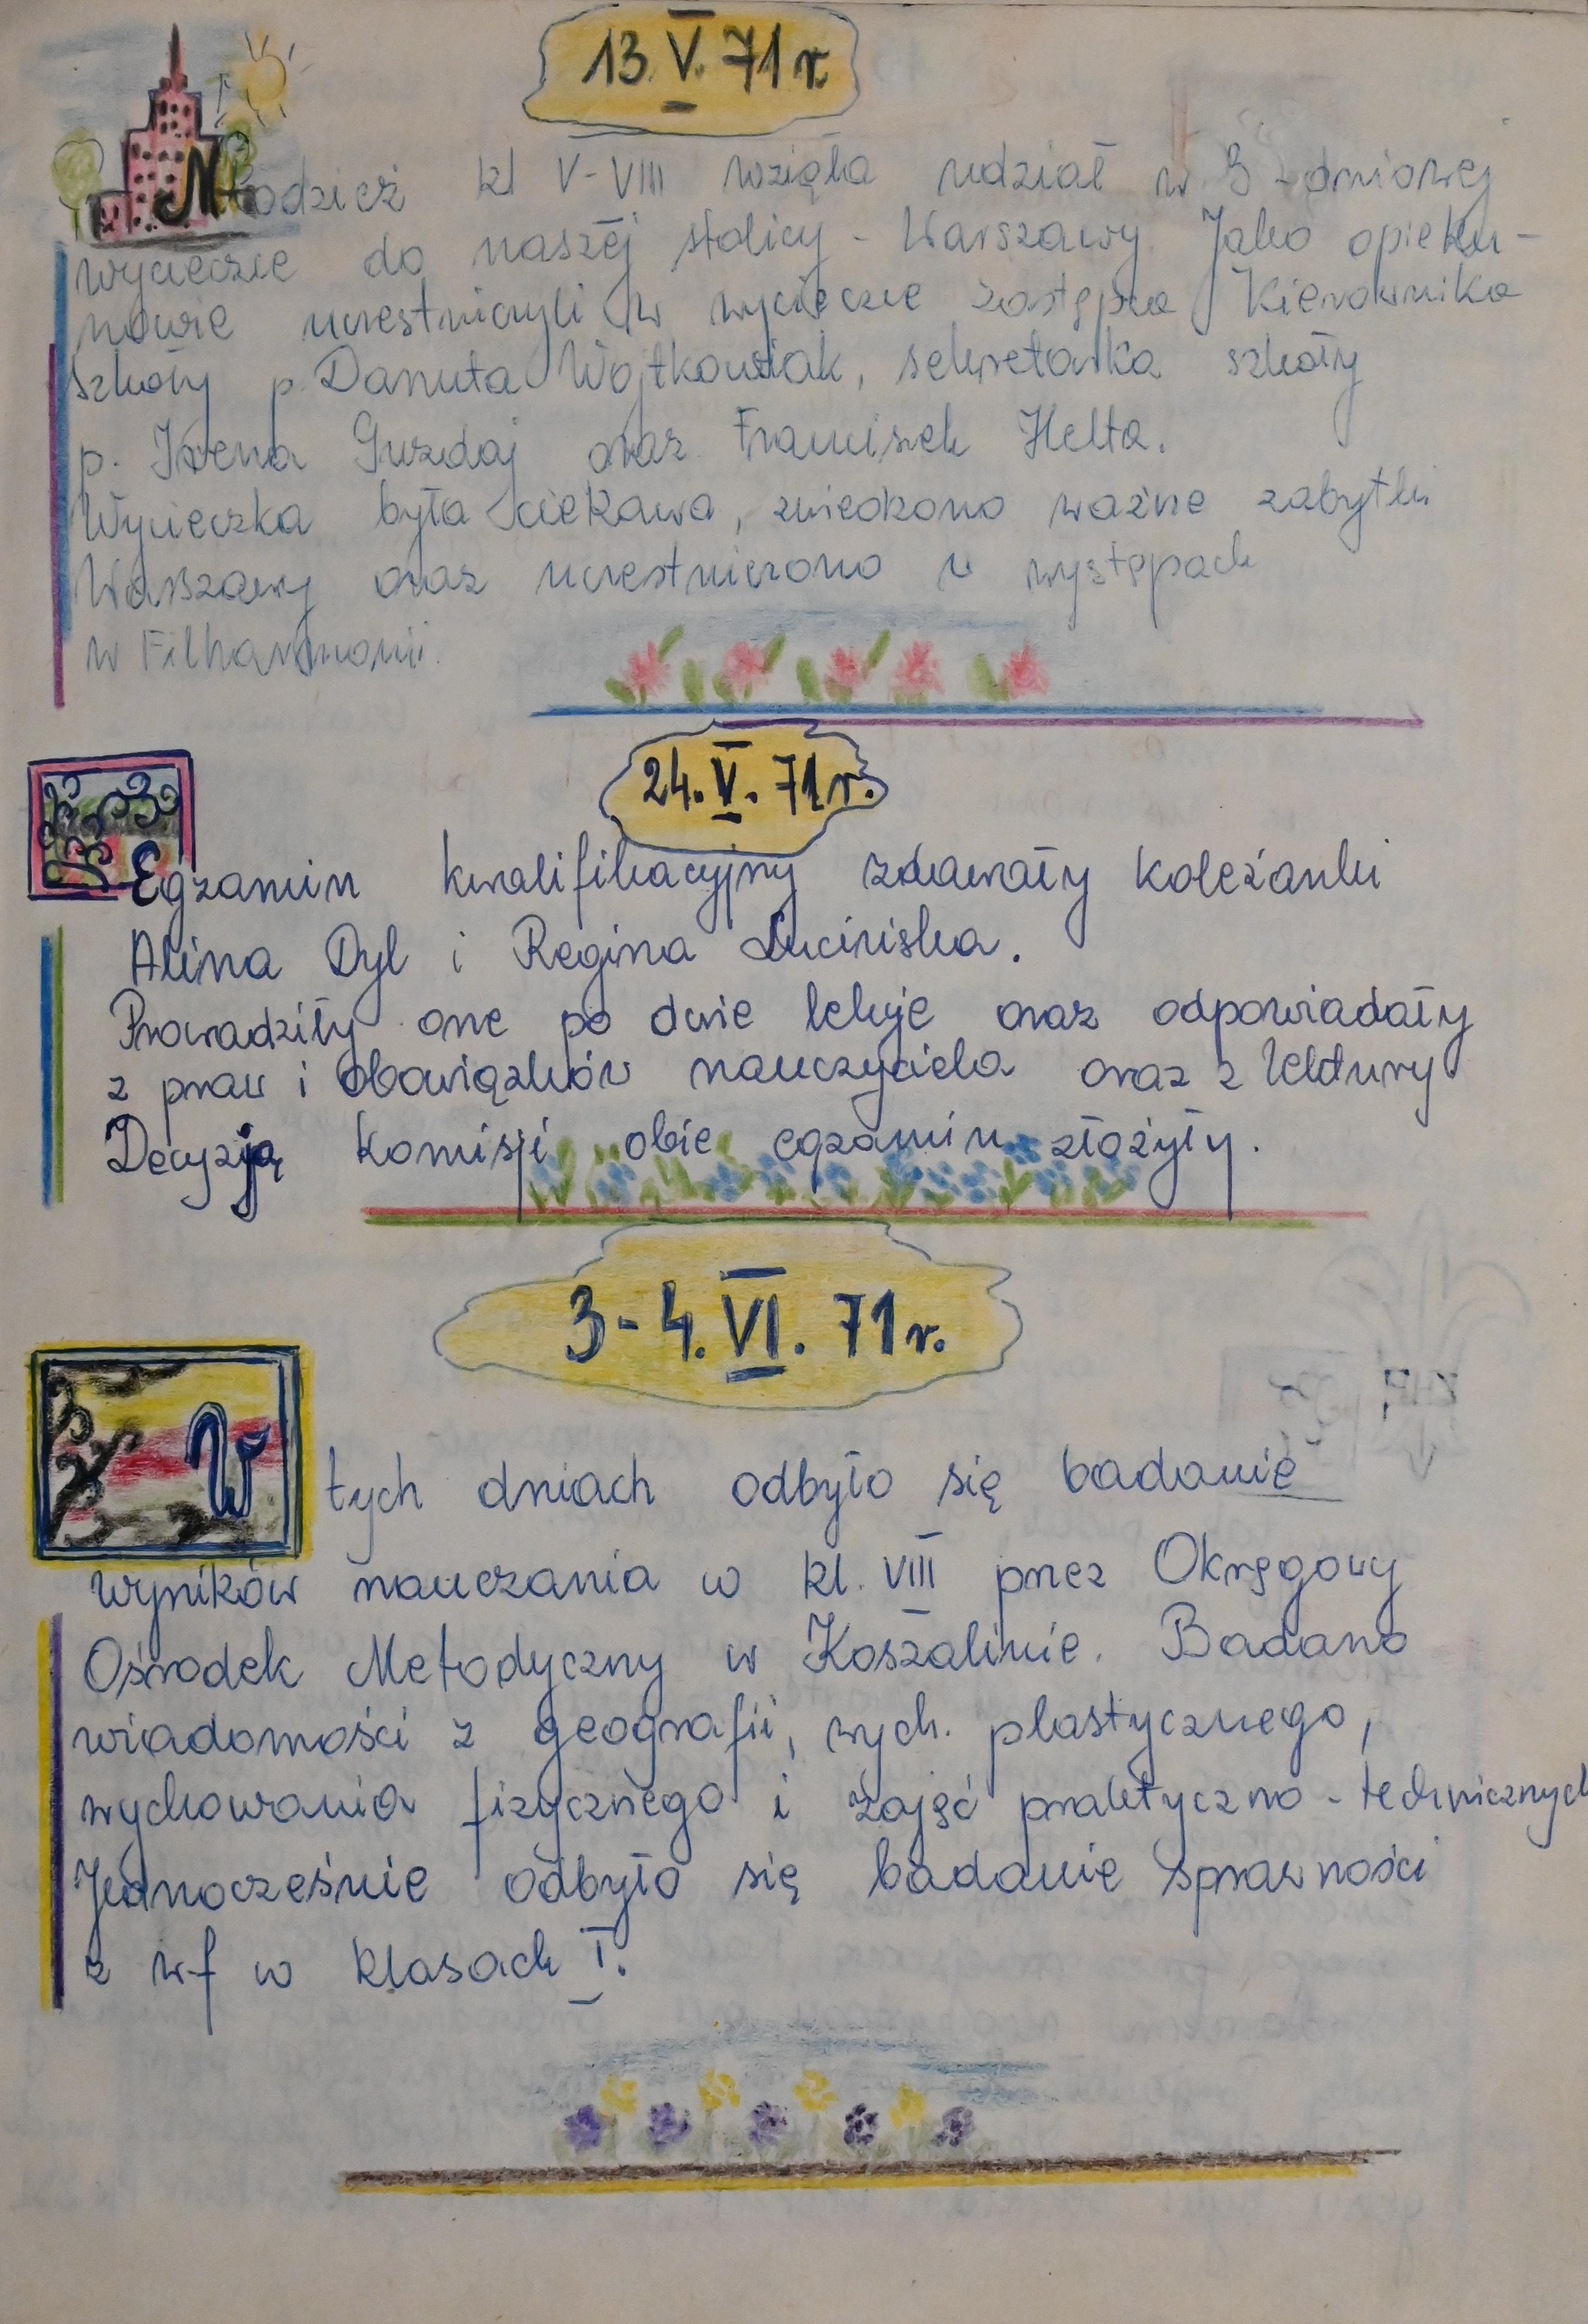 13. V. 71 r.
Młodzież kl V-VIII wzięła udział w 3-dniowej
wycieczce do naszej stolicy - Warszawy. Jako opieku-
nowie uczestniczyli w wycieczce zastępca Kierownika
szkoły p. Danuta Wojtkowiak, sekretarka szkoły
p. Irena Guzdaj oraz Franciszek Helta.
Wycieczka była ciekawa, zwiedzono ważne zabytki
Warszawy oraz uczestniczono w występach
w Filharmonii.
24. V. 71 r.
Egzamin kwalifikacyjny zdawały koleżanki
Alina Dyl i Regina Łucińska.
Prowadziły one po dwie lekcje oraz odpowiadały
z praw i obowiązków nauczyciela oraz z lektury
Decyzją Komisji obie egzamin złożyły.
3-4. VI. 71 r.
W tych dniach odbyło się badanie
wyników nauczania w kl. VIII przez Okręgowy
Ośrodek Metodyczny w Koszalinie. Badano
wiadomości z geografii, wych. plastycznego,
wychowania fizycznego i zajęć praktyczno-technicznych
Jednocześnie odbyło się badanie sprawności
z w-f w klasach I.